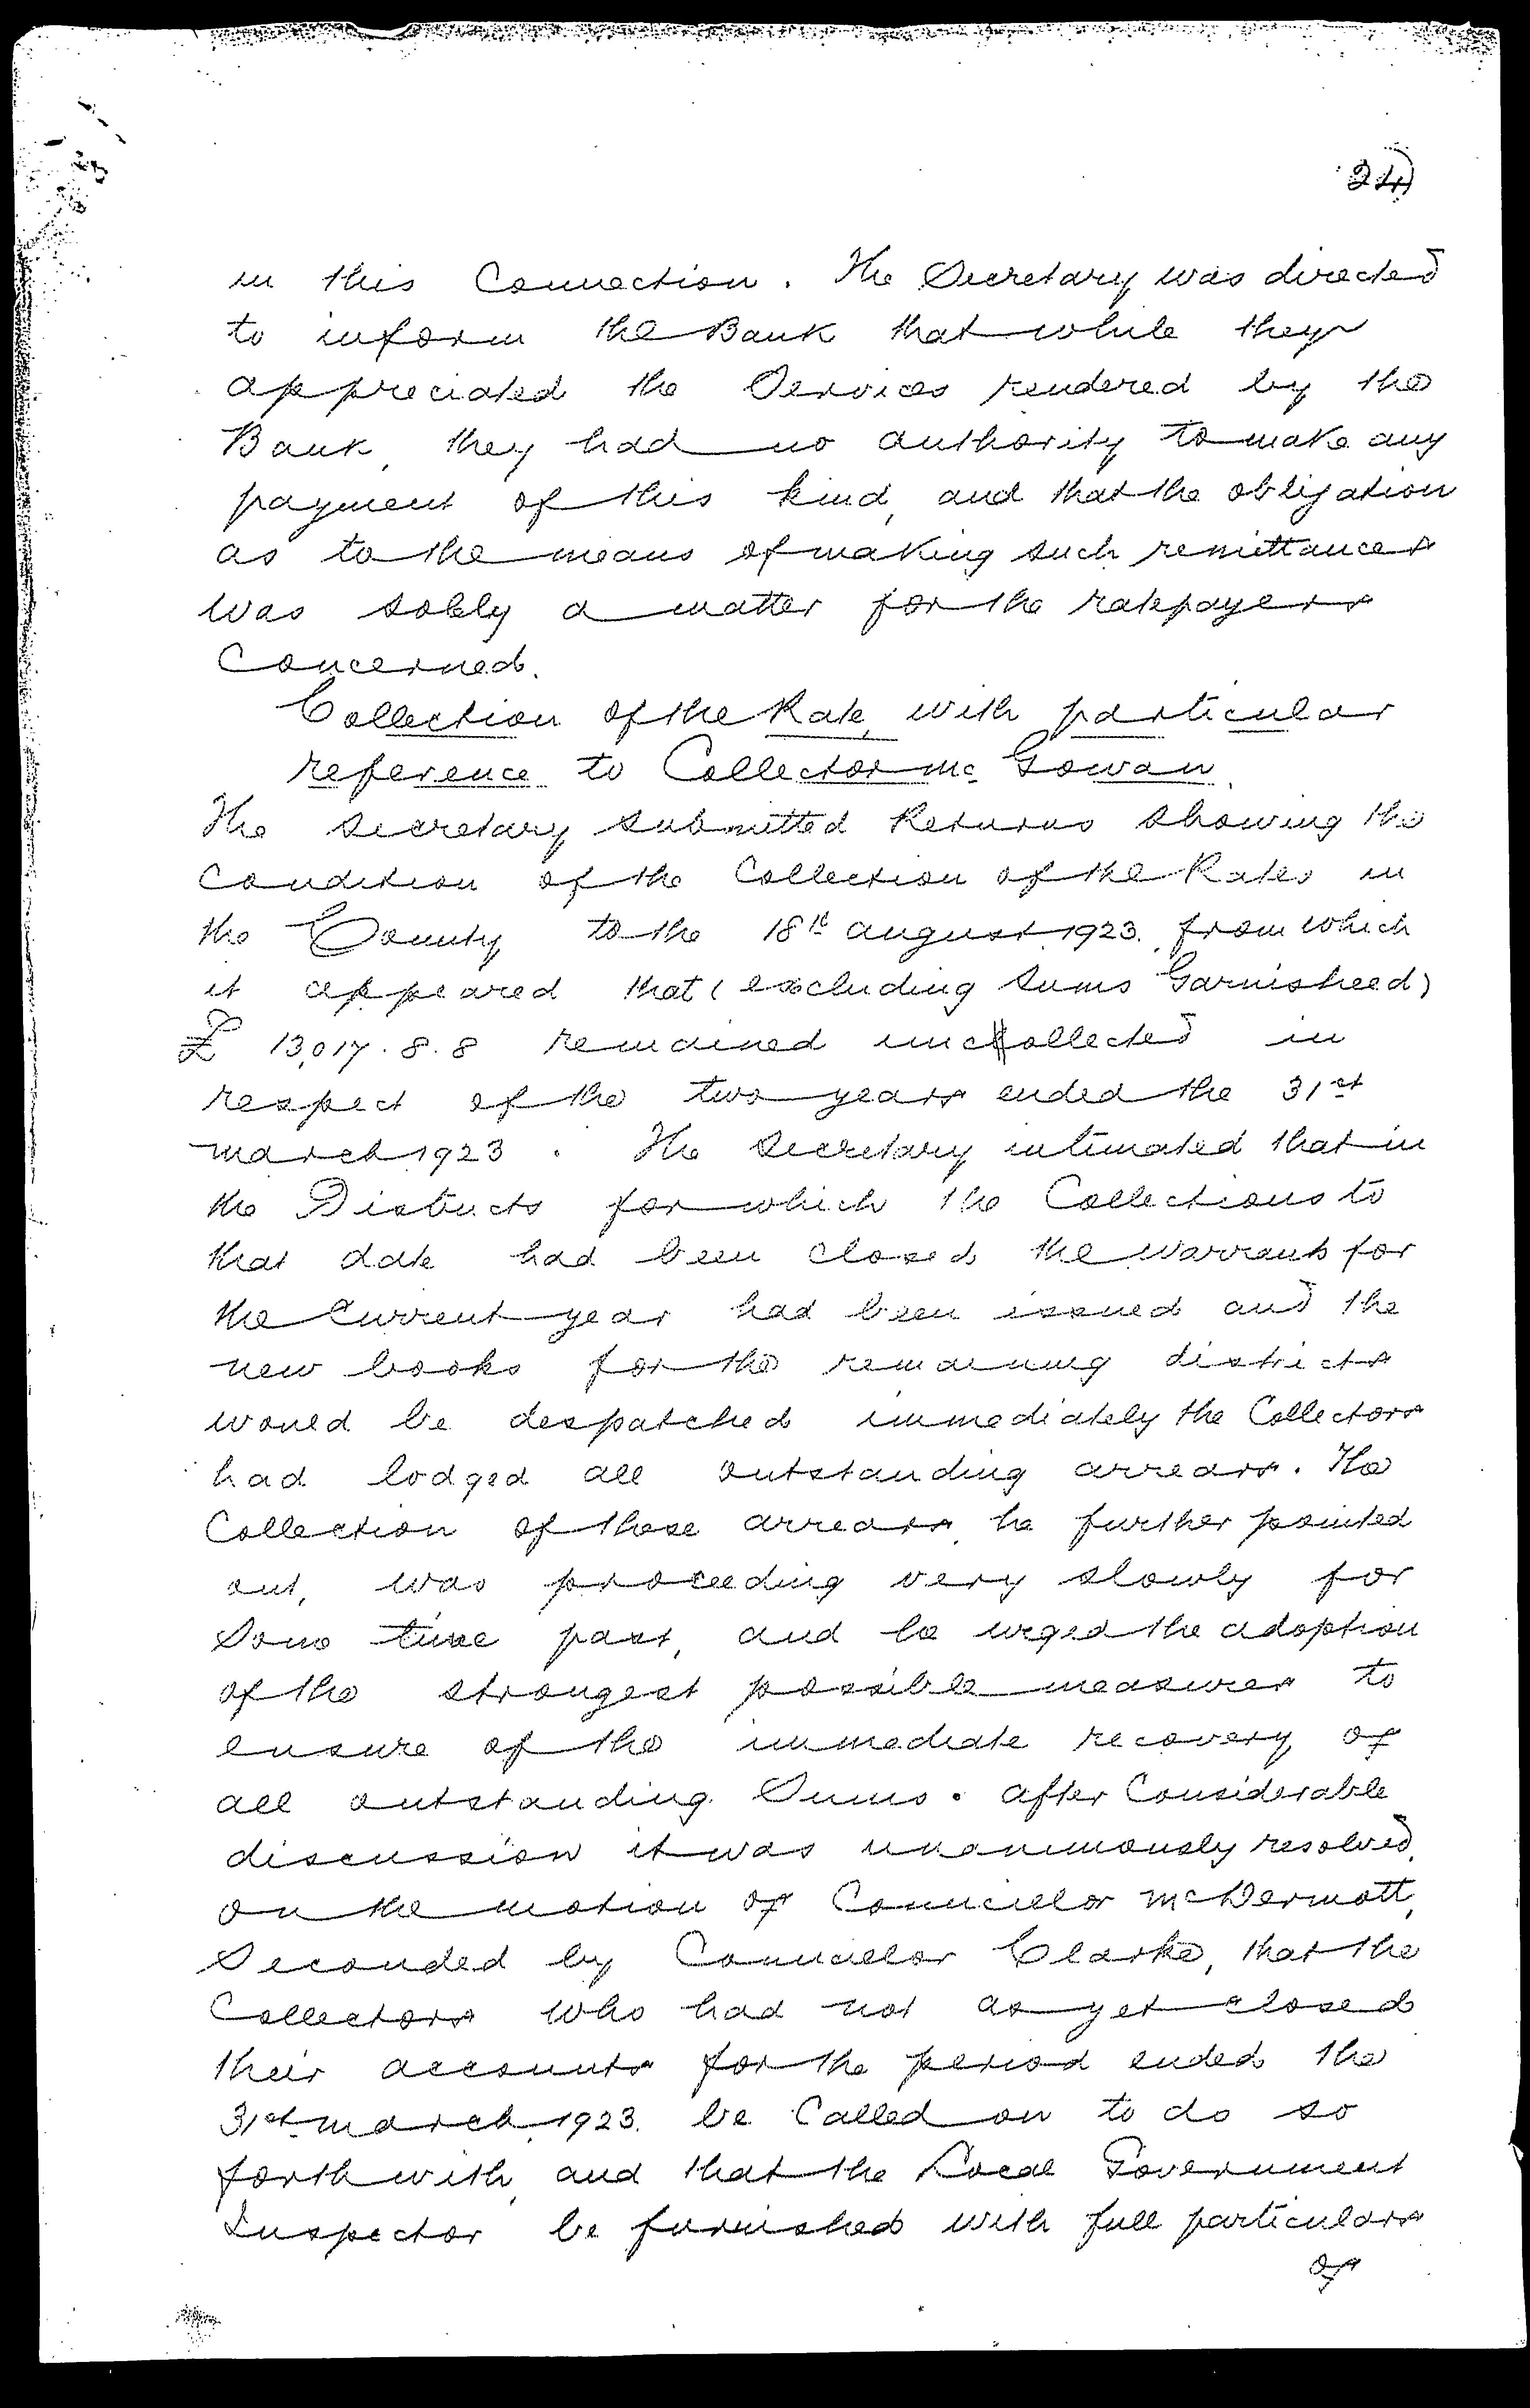 24)
in this Connection. The Secretary was directed
to inform the Bank that while they
appreciated the Services rendered by the
Bank, they had no authority to make any
payment of this kind, and that the obligation
as to the means of making such remittances
was solely a matter for the ratepayers
Concerned.
Collection of the Rate, with particular
reference to Collector Mc Gowan.
The Secretary submitted Returns showing the
Condition of the Collection of the Rates in
the County to the 18th August 1923. from which
it appeared that (excluding sums Garnisheed)
£ 13,017. 8. 8 remained uncollected in
respect of the two years ended the 31st
March 1923. The Secretary intimated that in
the Districts for which the Collections to
that date had been closed the warrants for
the Current year had been issued and the
new books for the remaining districts
would be despatched immediately the Collectors
had lodged all outstanding arrears. The
Collection of these arrears, he further pointed
out, was proceeding very slowly for
some time past, and he urged the adoption
of the strongest possible measures to
ensure of the immediate recovery of
all outstanding Sums. After Considerable
discussion it was unanimously resolved,
on the motion of Councillor McDermott,
Seconded by Councillor Clarke, that the
Collectors who had not as yet closed
their accounts for the period ended the
31st March, 1923. be Called on to do so
forthwith, and that the Local Government
Inspector be furnished with full particulars
of